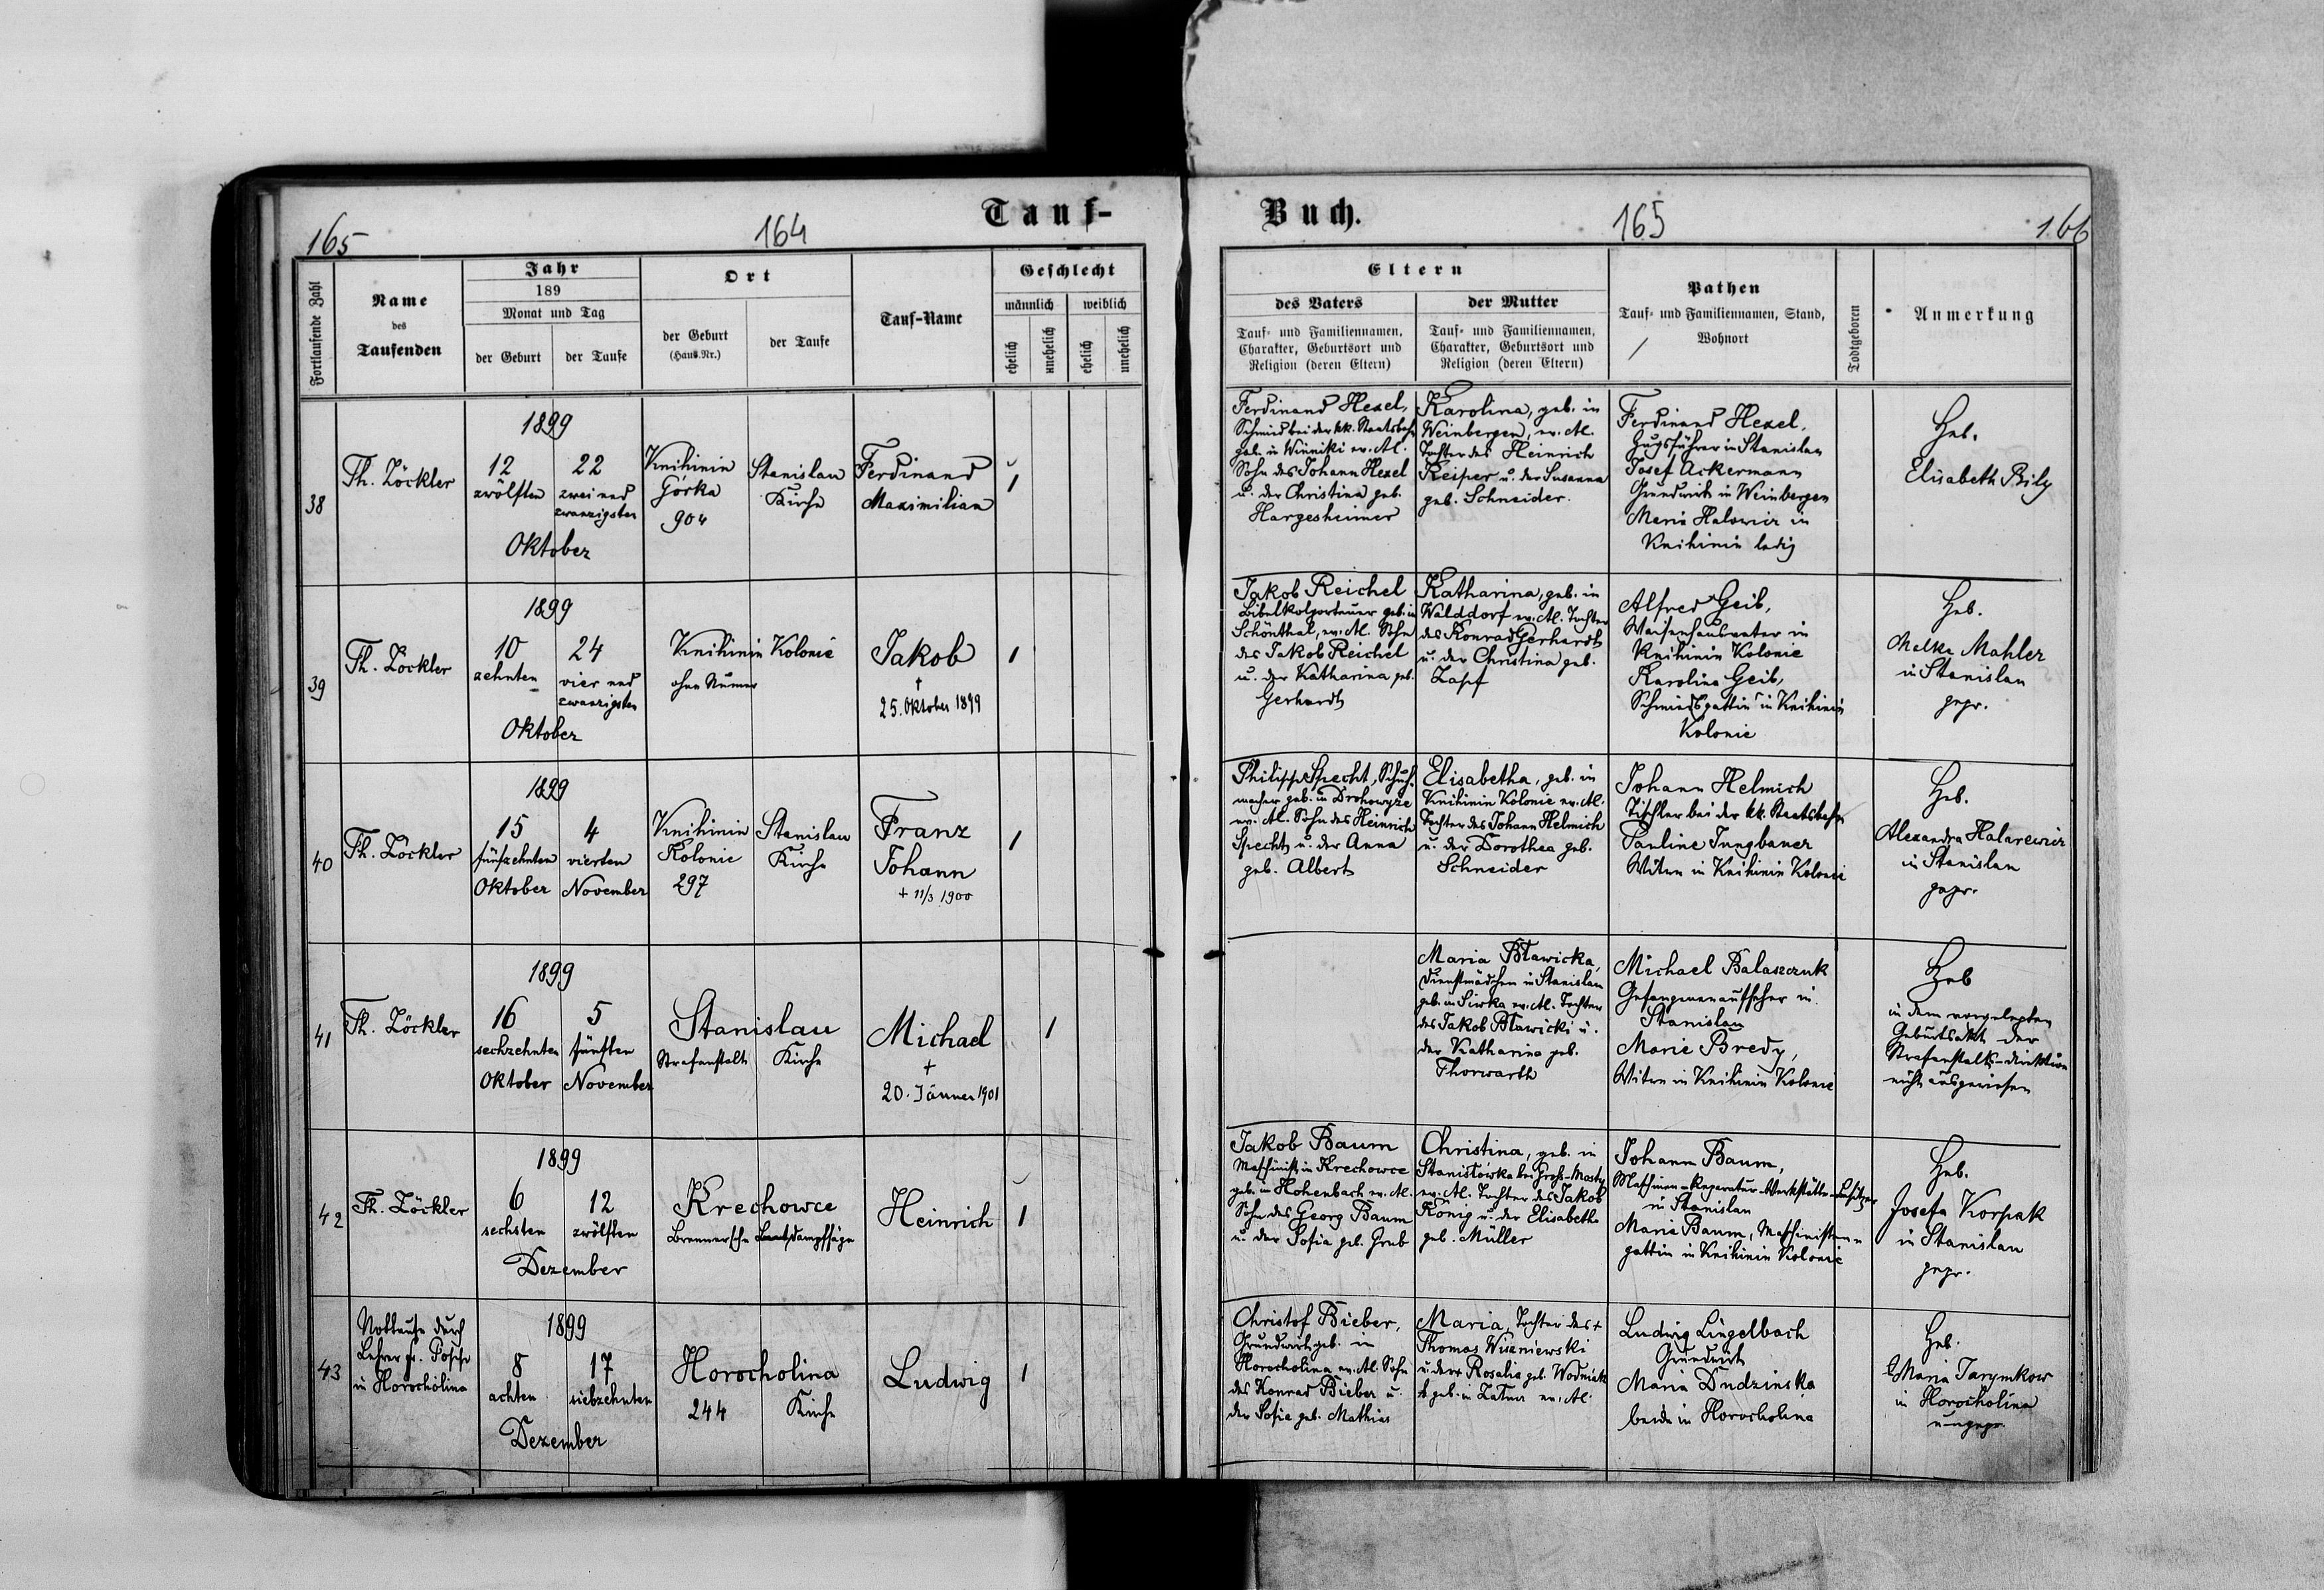 Tauf-
Buch.
165
164
165
166
Fortlaufende Zahl
Name
des
Taufenden
Jahr
189
Monat und Tag
der Geburt
der Taufe
Ort
der Geburt
(Haus-Nr.)
der Taufe
Tauf-Name
Geschlecht
männlich
weiblich
ehelich
unehelich
ehelich
unehelich
Eltern
des Vaters
Tauf- und Familiennamen,
Charakter, Geburtsort und
Religion (deren Eltern)
der Mutter
Tauf- und Familiennamen,
Charakter, Geburtsort und
Religion (deren Eltern)
Pathen
Tauf- und Familiennamen, Stand,
Wohnort
Todtgeboren
Anmerkung
38
Th. Zöckler
1899
12
zwölften
22
zwei und
zwanzigsten
Oktober
Knihinin
Górka
904
Stanislau
Kirche
Ferdinand
Maximilian
1
Ferdinand Hexel,
Schmied bei der kk. Staatsbahn
geb. in Winniki ev. A.
Sohn des Johann Hexel
u. der Christina geb.
Hargesheimer
Karolina, geb. in
Weinbergen, ev. A.
Tochter des Heinrich
Reiper u. der Susanna
geb. Schneider.
Ferdinand Hexel,
Zugsführer in Stanislau
Josef Ackermann
Grundwirth in Weinbergen
Maria Halowicz in
Knihinin ledig
Heb.
Elisabeth Bily
39
Th. Zöckler
1899
10
zehnten
24
vier und
zwanzigsten
Oktober
Knihinin Kolonie
ohne Numer
Jakob
+
25. Oktober 1899
1
Jakob Reichel
Bibelkolporteur geb. in
Schönthal, ev. A. Sohn
des Jakob Reichel
u. der Katharina geb.
Gerhardt
Katharina, geb. in
Walddorf ev. A. Tochter
des Konrad Gerhardt
u. der Christina geb.
Zapf
Alfred Geib,
Waisenhausvater in
Knihinin Kolonie
Karolina Geib,
Schmiedsgattin in Knihinin
Kolonie
Heb.
Malke Mahler
in Stanislau
gepr.
40
Th. Zöckler
1899
15
fünfzehnten
Oktober
4
vierten
November
Knihinin
Kolonie
297
Stanislau
Kirche
Franz
Johann
+ 11/3 1900
1
Philipp Specht, Schuh-
macher geb. in Drohowyze
ev. A. Sohn des Heinrich
Specht u. der Anna
geb. Albert
Elisabetha, geb. in
Knihinin Kolonie ev. A.
Tochter des Johann Helmich
u. der Dorothea geb.
Schneider
Johann Helmich
Tischler bei der kk. Staatsbahn
Pauline Jungbauer
Witwe in Knihinin Kolonie
Heb.
Alexandra Halarewicz
in Stanislau
gepr.
41
Th. Zöckler
1899
16
sechzehnten
Oktober
5
fünften
November
Stanislau
Strafanstalt
Kirche
Michael
+
20. Jänner 1901
1
Maria Bławicka,
Dienstmädchen in Stanislau
geb. in Siwka ev. A. Tochter
des Jakob Bławicki u.
der Katharina geb.
Thorwarth
Michael Balaszczuk
Gefangenenaufseher in
Stanislau
Marie Bredy,
Witwe in Knihinin Kolonie
Heb
in dem vorgelegten
Geburtsakt der
Strafanstalts-direktion
nicht ausgewiesen
42
Th. Zöckler
1899
6
sechsten
12
zwölften
Dezember
Krechowce
Brennersche Dampfsäge
Heinrich
1
Jakob Baum
Maschinist in Krechowce
geb. in Hohenbach ev. A.
Sohn des Georg Baum
u. der Sofia geb. Grub
Christina, geb. in
Stanisłówka bei Groß-Mosty
ev. A. Tochter des Jakob
König u. der Elisabeth
geb. Müller
Johann Baum,
Maschinen-Reparatur-Werkstätte-Besitzer
in Stanislau
Maria Baum, Maschinisten-
gattin in Knihinin Kolonie
Heb.
Josefa Korpak
in Stanislau
gepr.
43
Nottaufe durch
Lehrer
in Horocholina
1899
8
achten
17
siebzehnten
Dezember
Horocholina
244
Kirche
Ludwig
1
Christof Bieber,
Grundwirth geb. in
Horocholina ev. A. Sohn
des Konrad Bieber u.
der Sofie geb. Mathias
Maria, Tochter des +
Thomas Wiszniewski
u. der + Rosalia geb. Wodniak
geb. in ev. A.
Ludwig Lingelbach
Grundwirth
Maria Dudzinska
beide in Horocholina
Heb.
Maria Tarymkow
in Horocholina
ungepr.